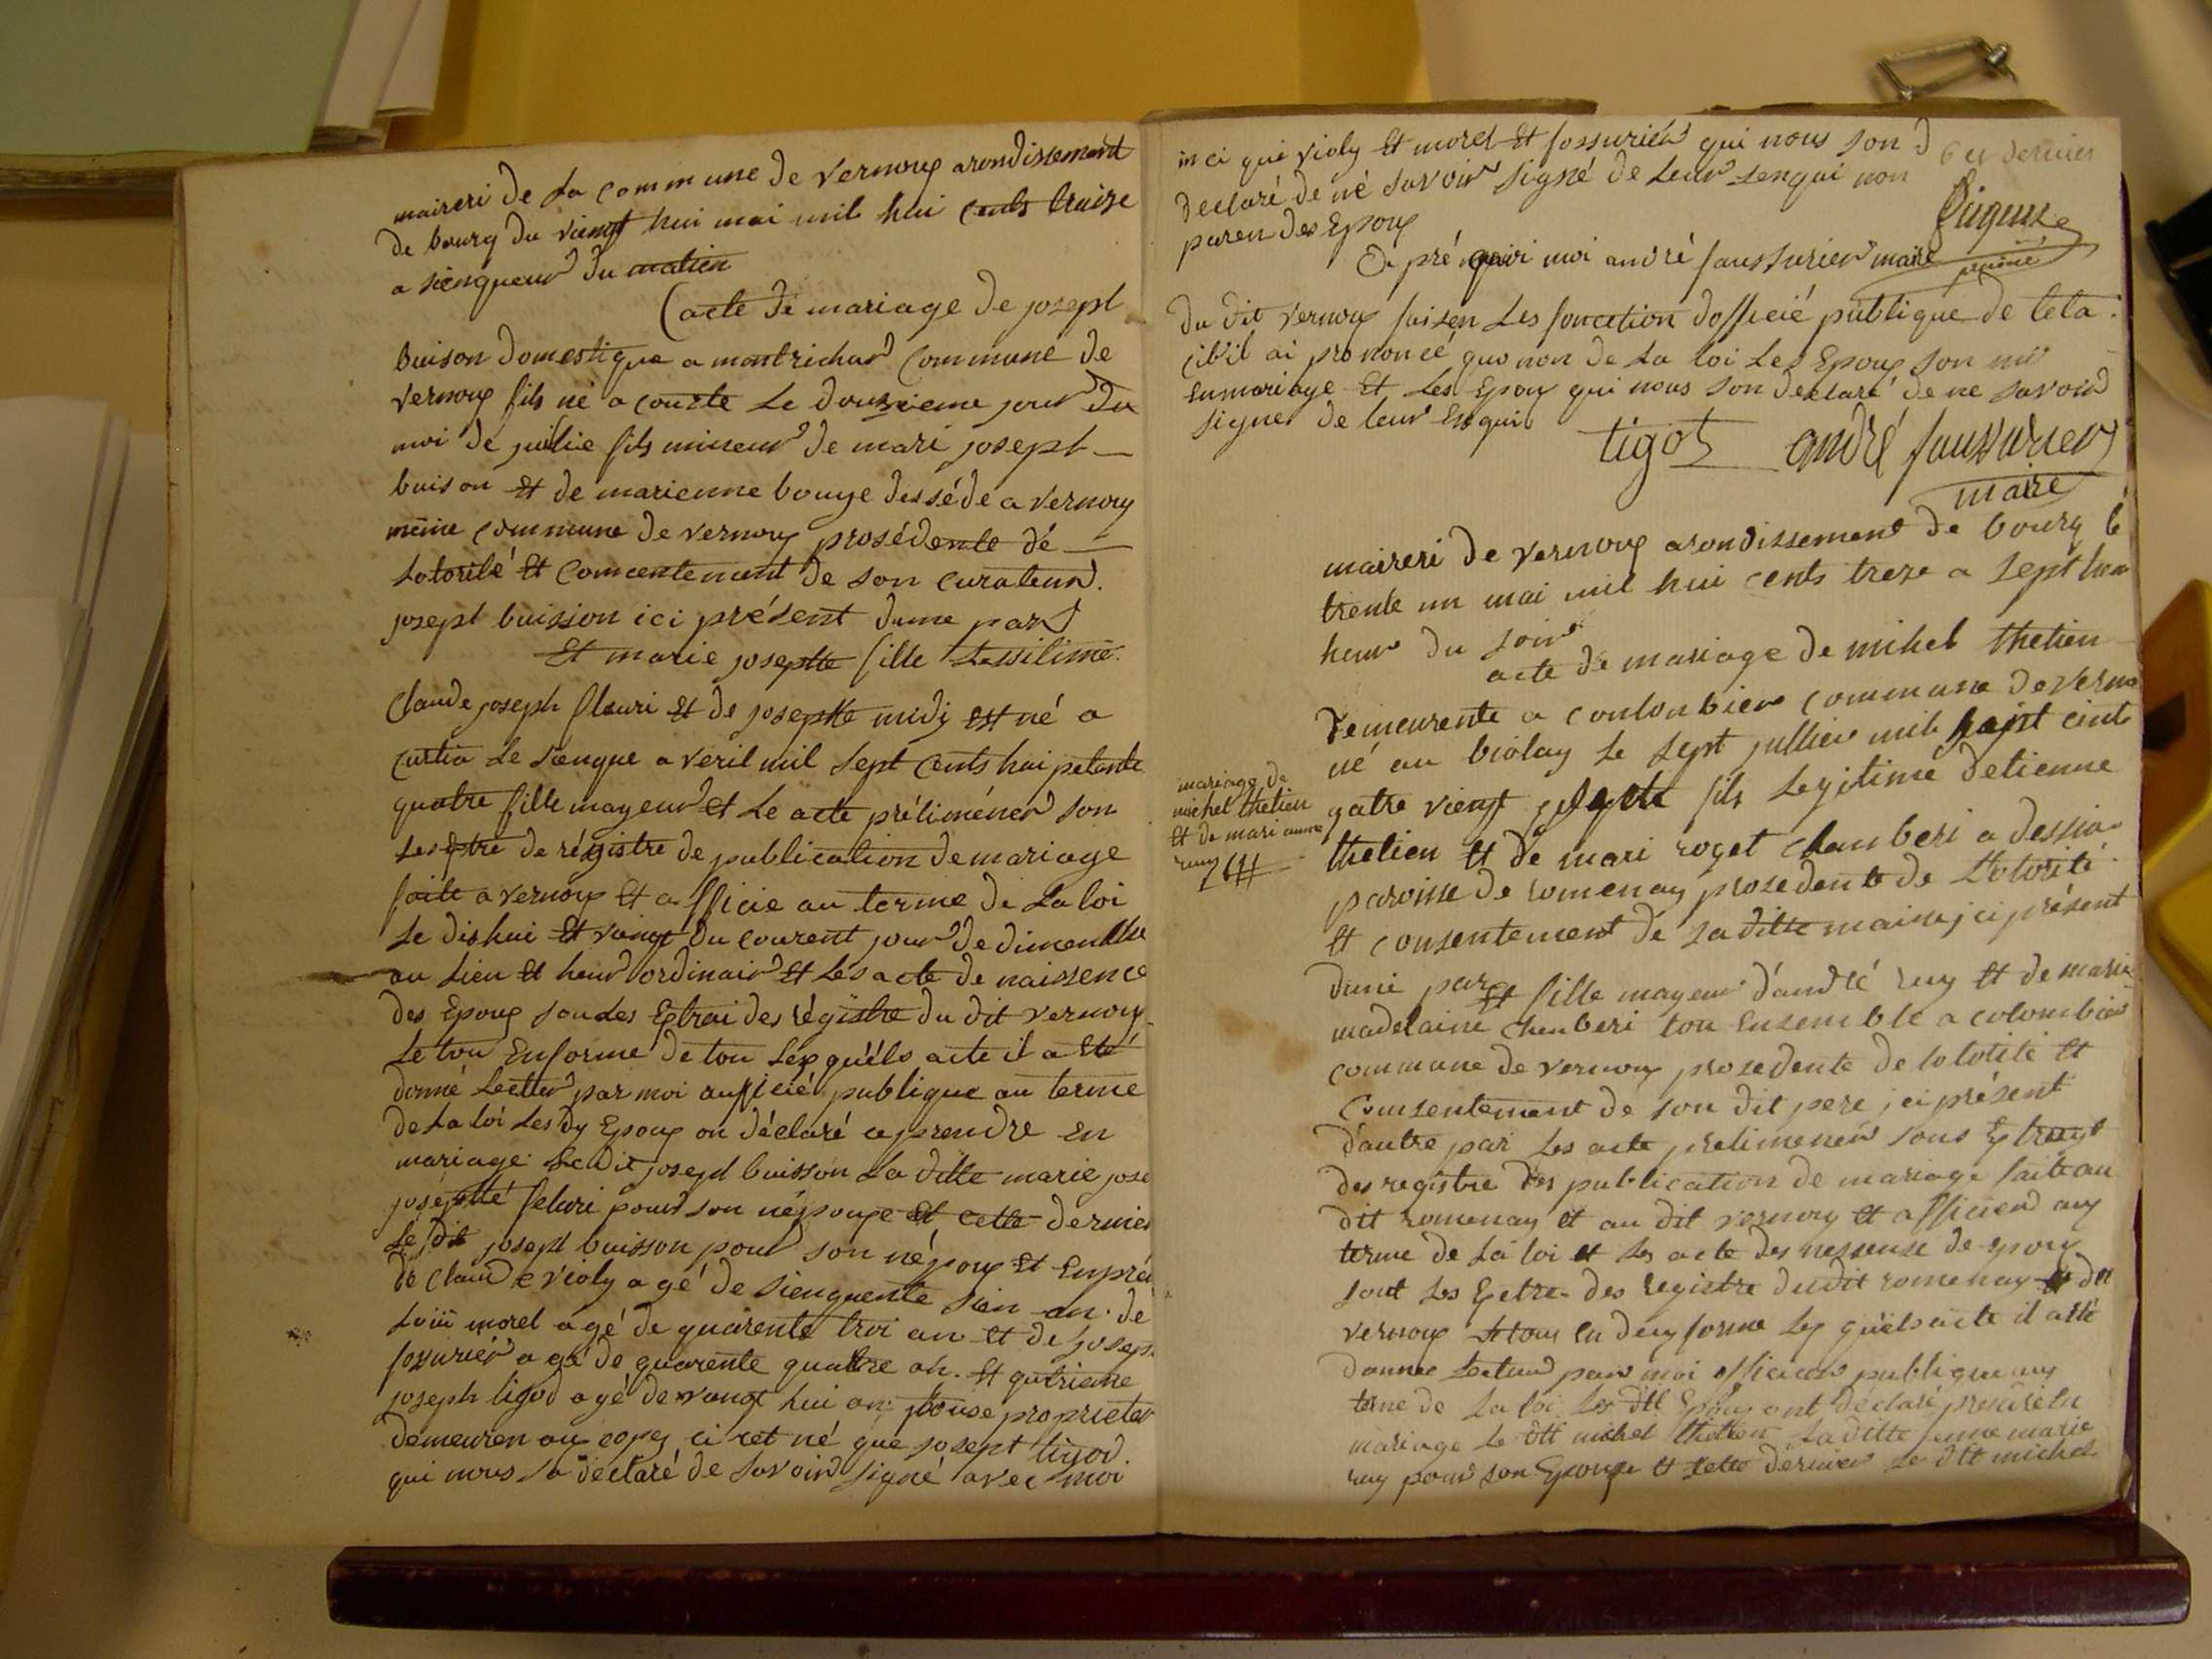 maireri de La commune de vernoux arondissement
de bourg du viengt hui mai mil hui cents traize
a siengueur du matien
(acte de mariage de josept
buison domestique a montrichar commune de
vernoux fils né a courte Le douzsieme jour du
moi de juilie fils mineur de mari josept
buison et de marienne bouge desséde a vernoux
même commune de vernoux prosédente dé
Lotorité et comcentement de son curateur.
josept buission ici présent dune part
Et marie josephte fille Lessilime
Claude joseph fleuri et de josephte midy est né a
curtia Le sienque a veril mil sept cents hui petante
quatre fille mayeur et Le acte préliménér son
Lesestre de régistre de publication de mariage
faite a vernoux et a fficie au terme de La loi
Le dishui et vaingt du courent jour de dimenche
au Lieu et heur ordinair et Les acte de naissence
des Epoux son Les Extrai des régistre du dit vernoux
Le tou Enforme de tou Lesquéls acte il a été
donné Lectur par moi aufficié publique au terme
de La loi Les dy Epoux on déclaré ce prendre En
mariage Le dit josept buisson La ditte marie jose
joséphté feluri pour son népouxe et cette dernier
Le dit josept buisson pour son népoux Et Enpré
de Claude violy agé de sienquente sien an. de
Loiii morel agé de quarente troi an et de josep
fossuriér agé de quarente quattre an. Et qutrieme
joseph ligod agé de vangt hui an; touse proprietér
demeuren au copes ci ret né que josept tigod.
qui nous sa déclaré de savoir signé avec moi
in ci que violy et morel et fossuriér qui nous son d
6 et dernier
declaré de né savoir signé de Leur senqui non
paren des Epoux
A pré quoi moi andré faussurier maire
du dit vernoux faisen Les fonction dofficié publique de leta
cibil ai prononcé quo non de La loi Les Epoux son uni
en mariage Et Les Epoux qui nous son declaré de ne savoir
signer de leur Enquis
tigot andré faussurier
maire
maireri de vernoux arondissement de bourg le
trente un mai mil hui cents treze a sept heu
heur du soir
acte de mariage de mihel thetien
demeurente a coulonbier commune de verno
né au biolay Le sept jullier mil saipt cint
mariage de
michel thetien
et de mari anne
ruy
gatre viengt fils Legitime detienne
thetien et de mari roget chanberi a dessia
paroisse de romenay prosedente de Lotorité
et consentement de sa ditte maire ici présent
dune par
et fille mayeur d'andré ruy et de marie
madelaine chenberi tou Ensemble a colombier
commune de vernoux prosedente de lotorité et
consentement de son dit pere ici présent
d'autre par Les acte prelimenér sous Extrayt
des registre des publication de mariage faite au
dit romenay et au dit vernoux et afficier aux
terme de La loi et Les acte des nessense de epoux
sont Les Extre des registre dudit romenay et du
vernoux Le tous En deux forme Les quéls acte il a été
donnee Lectur par moi officier publique aux
terme de La loi Les dtt Epoux ont déclaré prendre En
mariage Le dtt michel thetien La ditte Jenne marie
ruy pour son Epouxe et cette dernier Le dtt michel